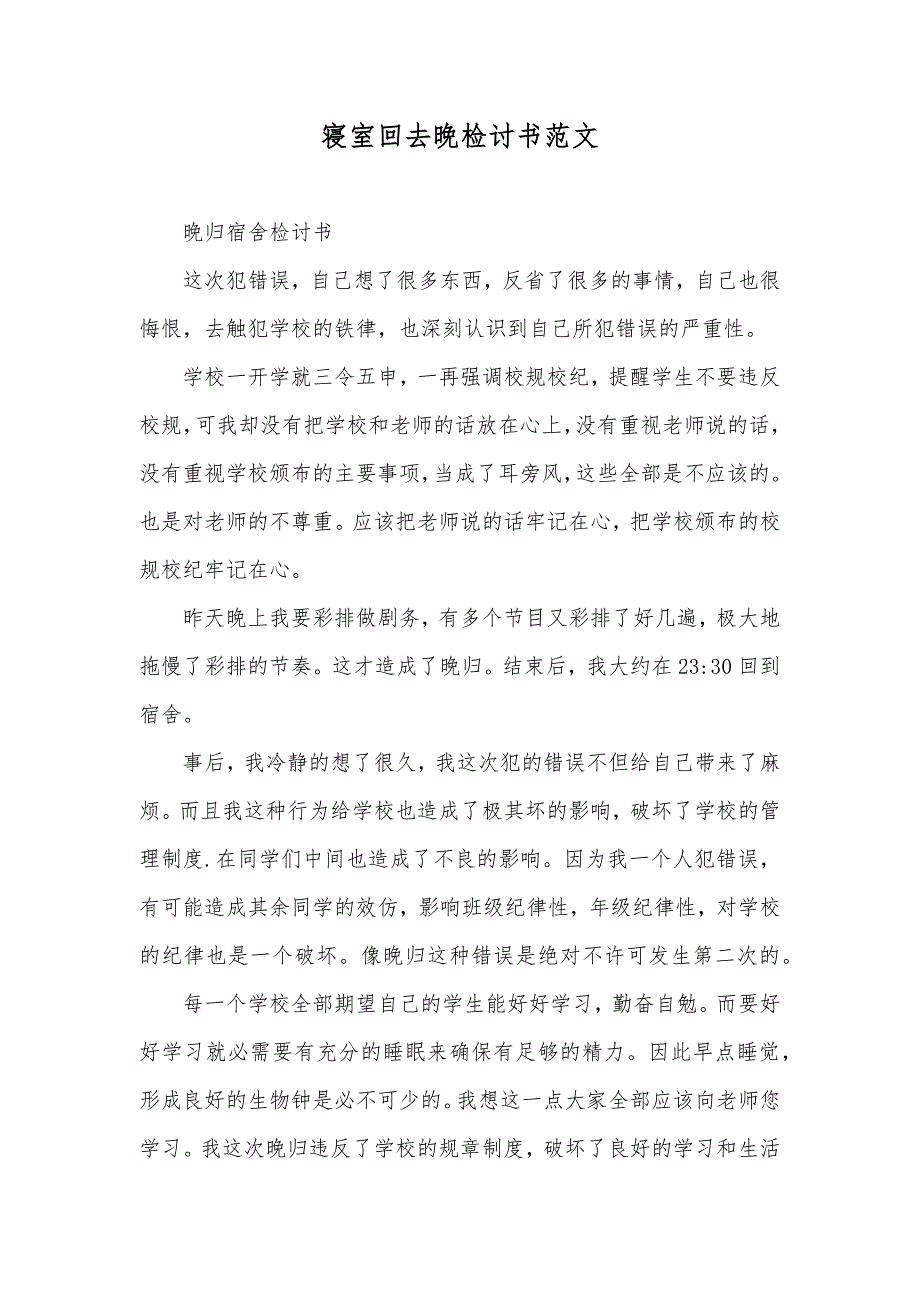 寝室回去晚检讨书范文
晚归宿舍检讨书
这次犯错误，自己想了很多东西，反省了很多的事情，自己也很
悔恨，去触犯学校的铁律，也深刻认识到自己所犯错误的严重性。
学校一开学就三令五申，一再强调校规校纪，提醒学生不要违反
校规，可我却没有把学校和老师的话放在心上，没有重视老师说的话，
没有重视学校颁布的主要事项，当成了耳旁风，这些全部是不应该的。
也是对老师的不尊重。应该把老师说的话牢记在心，把学校颁布的校
规校纪牢记在心。
昨天晚上我要彩排做剧务，有多个节目又彩排了好几遍，极大地
拖慢了彩排的节奏。这才造成了晚归。结束后，我大约在 23:30 回到
宿舍。
事后，我冷静的想了很久，我这次犯的错误不但给自己带来了麻
烦。而且我这种行为给学校也造成了极其坏的影响，破坏了学校的管
理制度.在同学们中间也造成了不良的影响。因为我一个人犯错误，
有可能造成其余同学的效仿，影响班级纪律性，年级纪律性，对学校
的纪律也是一个破坏。像晚归这种错误是绝对不许可发生第二次的。
每一个学校全部期望自己的学生能好好学习，勤奋自勉。而要好
好学习就必需要有充分的睡眠来确保有足够的精力。因此早点睡觉，
形成良好的生物钟是必不可少的。我想这一点大家全部应该向老师您
学习。我这次晚归违反了学校的规章制度，破坏了良好的学习和生活